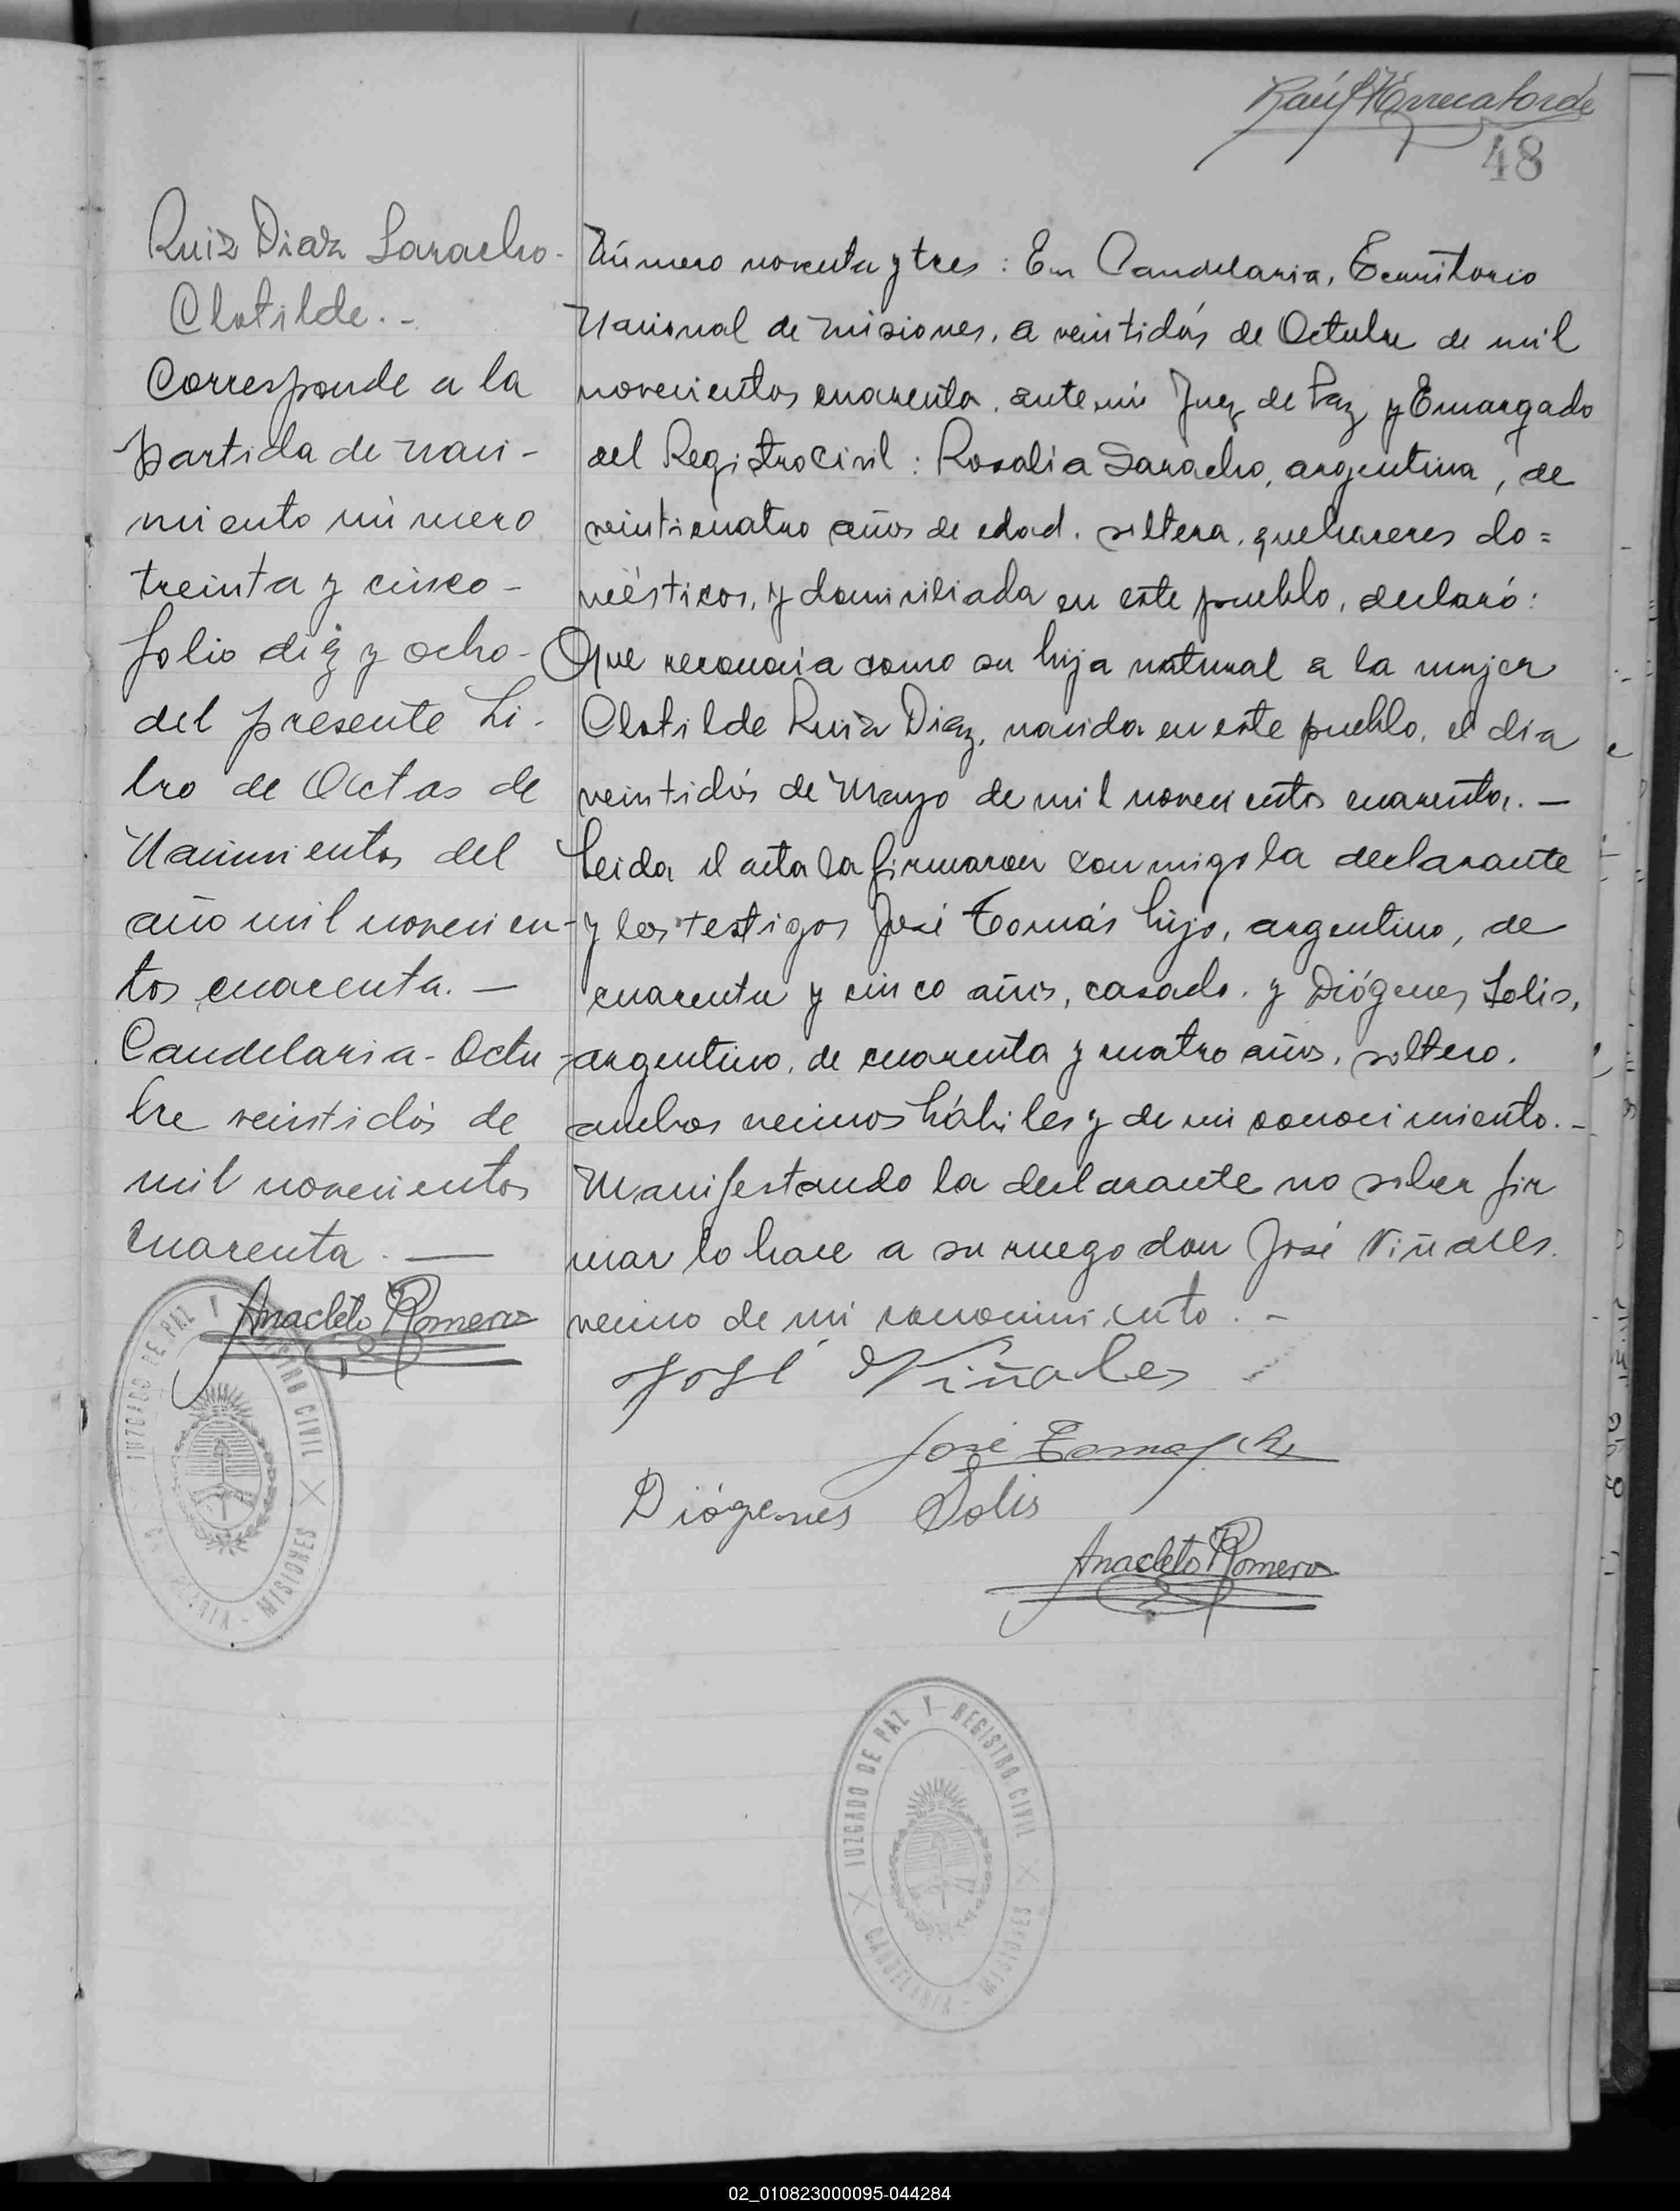 48
Ruiz Diaz Saracho-
Clotilde.-
Corresponde a la
partida de naci-
miento número
treinta y cinco-
folio diez y ocho-
del presente Li-
bro de Actas de
Nacimientos del
año mil novecien-
tos cuarenta.—
Candelaria-Octu-
bre veintidós de
mil novecientos
cuarenta.—
Anacleto Romero
JUZGADO DE PAZ Y REGISTRO CIVIL
MISIONES
Número noventa y tres: En Candelaria, Territorio
Nacional de Misiones, a veintidós de Octubre de mil
novecientos cuarenta, ante mí Juez de Paz y Encargado
del Registro Civil: Rosalia Saracho, argentina, de
veinticuatro años de edad, soltera, quehaceres do=
mésticos, y domiciliada en este pueblo, declaró:
Que reconocia como su hija natural a la mujer
Clotilde Ruiz Diaz, nacida en este pueblo, el dia
veintidós de Mayo de mil novecientos cuarenta.—
Leida el acta la firmaron conmigo la declarante
y los testigos José Tomás hijo, argentino, de
cuarenta y cinco años, casado, y Diógenes Solis,
argentino, de cuarenta y cuatro años, soltero,
ambos vecinos hábiles y de mi conocimiento.-
Manifestando la declarante no saber fir
mar lo hace a su ruego don José Viñales,
vecino de mi conocimiento.-
José Viñales
José Tomas
Diógenes Solis
Anacleto Romero
JUZGADO DE PAZ Y REGISTRO CIVIL
CANDELARIA - MISIONES
02_010823000095-044284